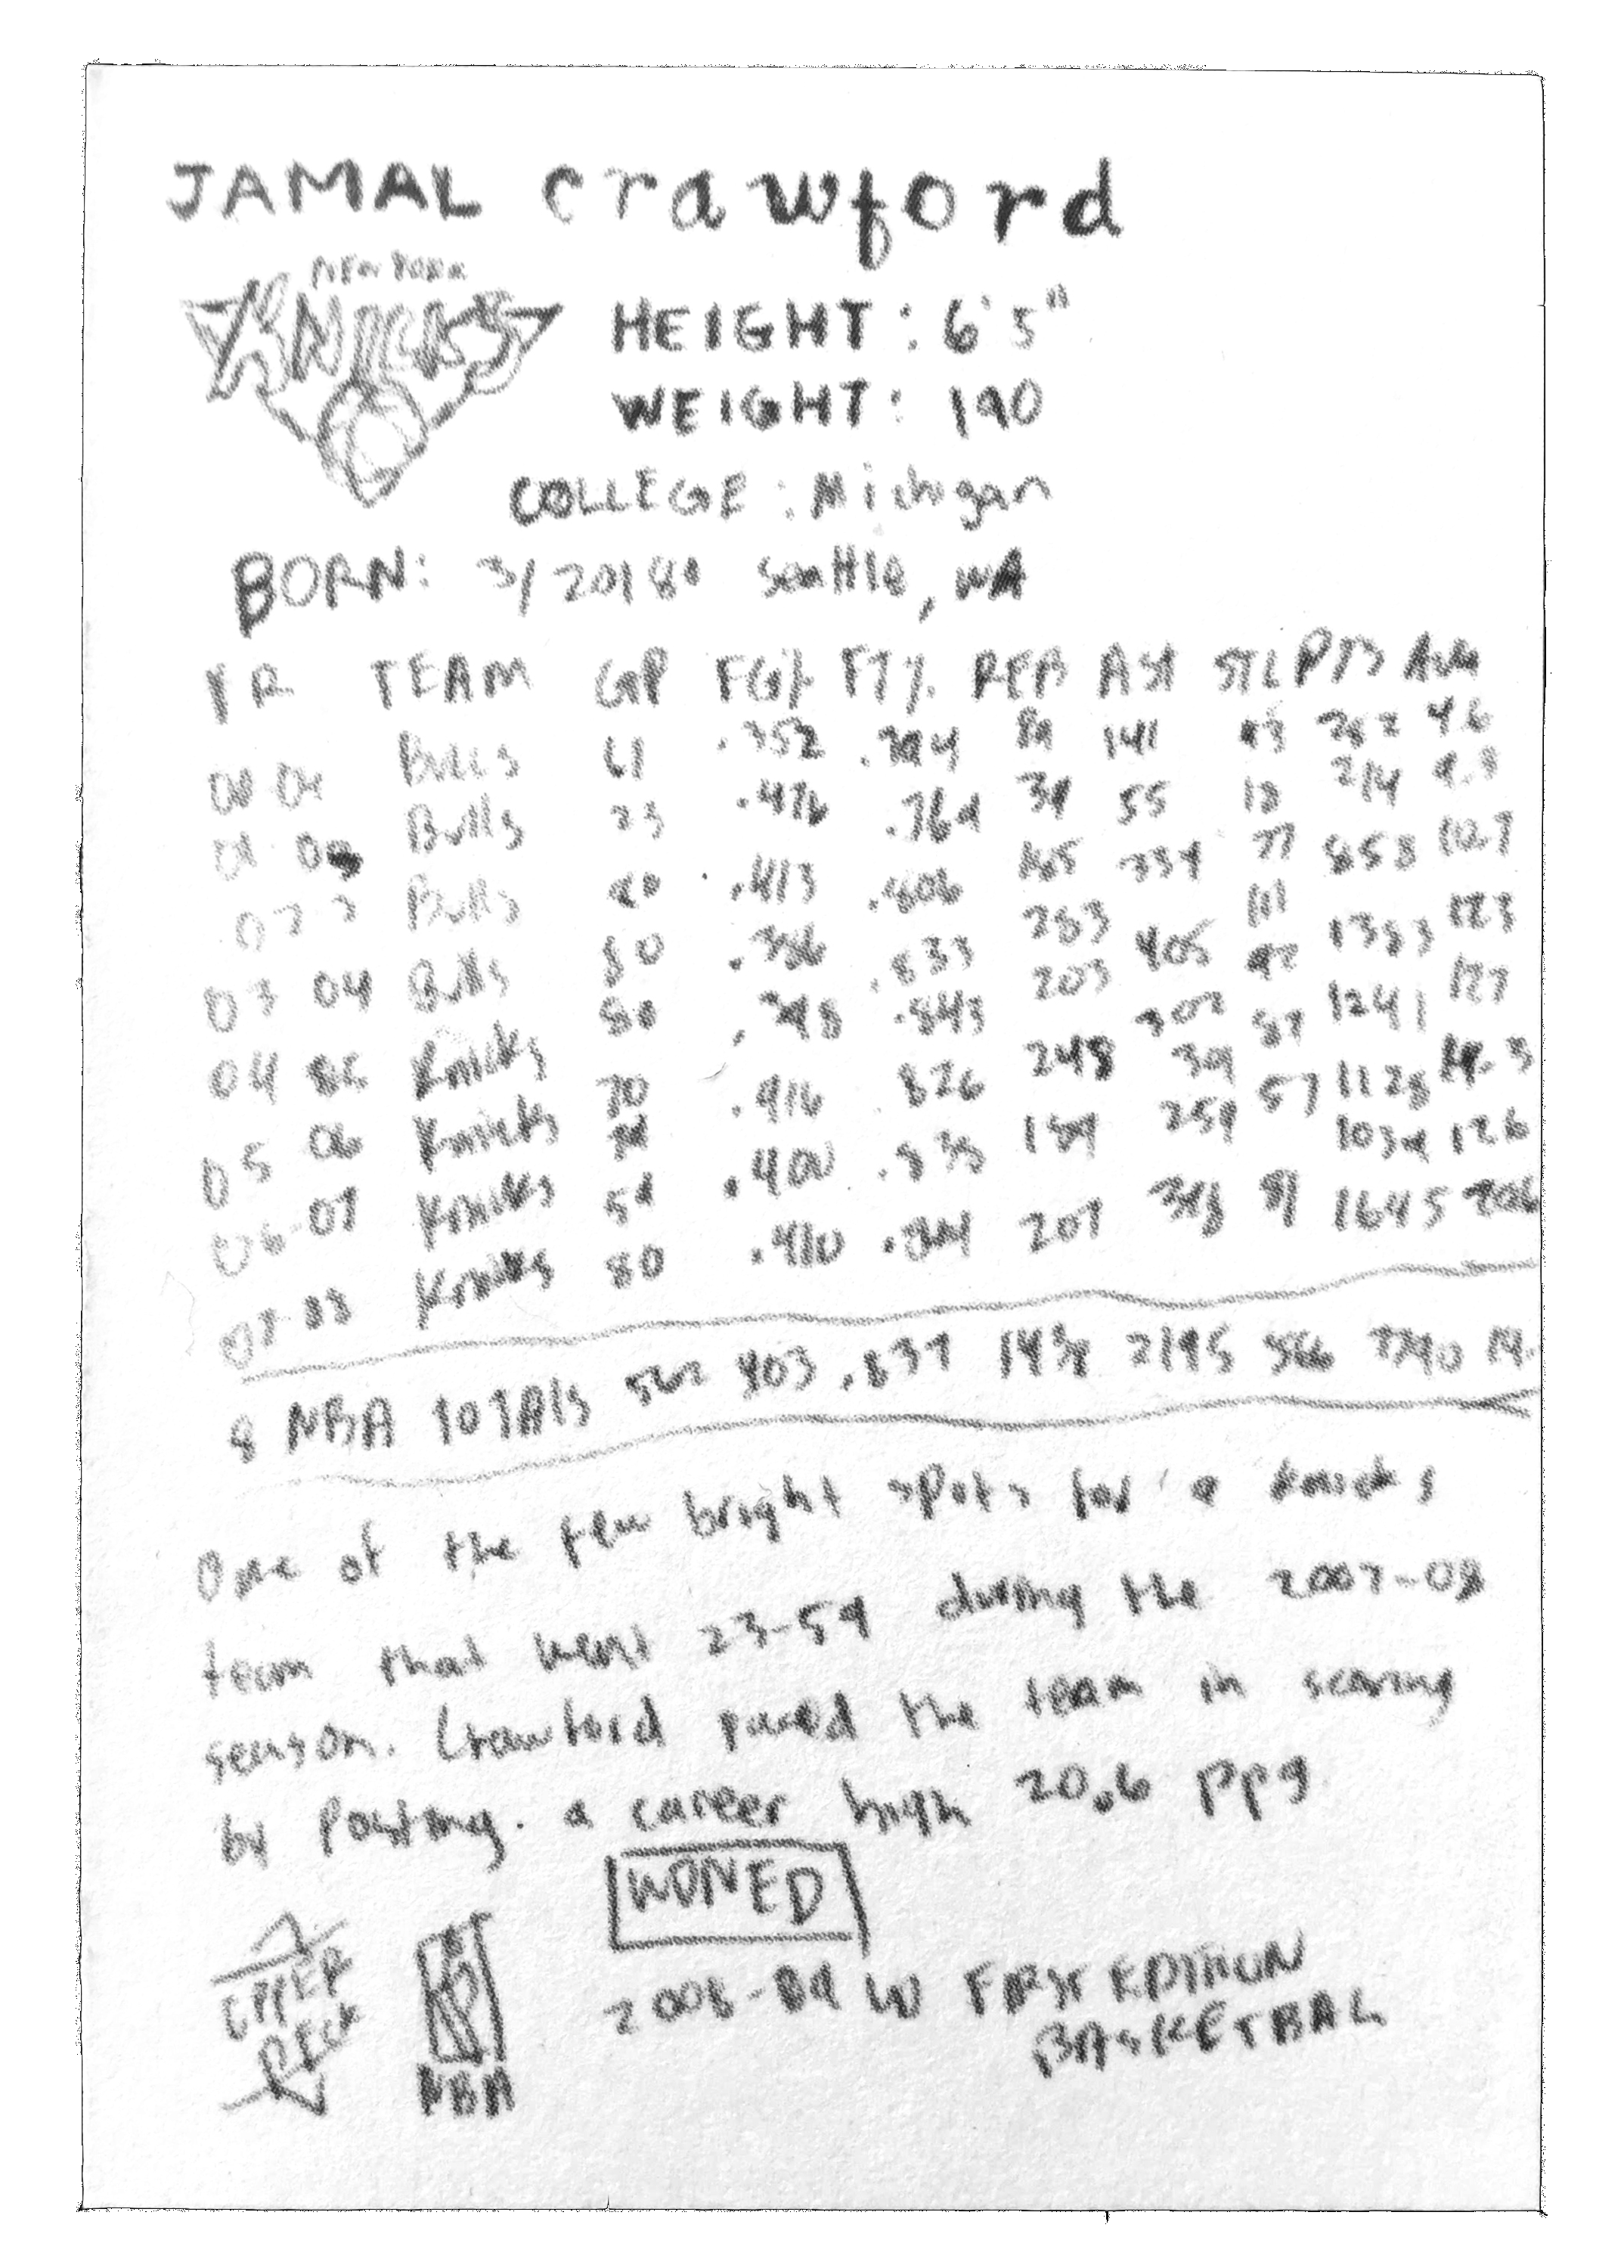 JAMAL crawford
NEW YORK
KNICKS
HEIGHT: 6'5"
WEIGHT: 190
COLLEGE: Michigan
BORN: 3/20/80 Seattle, WA
YR TEAM GP FG% FT% REB AST STL PTS AVG
Bulls 61 .352 .794 89 141 43 282 4.6
Bulls 23 .476 .769 34 55 18 214 9.3
Bulls 80 .413 .806 185 334 77 858 10.7
03 04 Bulls 80 .386 .833 283 405 111 1383 173
04 Knicks .398 .843 203 302 92 1241 177
05 06 Knicks .416 .826 248 87 1128 14.3
06-07 Knicks 59 .400 .838 189 259 57 1039 176
07-08 Knicks 80 .410 207 1645 206
8 NBA TOTAls 562 403 .837 2195 566 14.
One of the few bright spots for a Knicks
team that went 23-59 during the 2007-08
season. Crawford paced the team in scoring
by Posting. a career high 20.6 ppg
WONED
UPPER
DECK
NBA
2008-09 EDITION
BASKETBAL